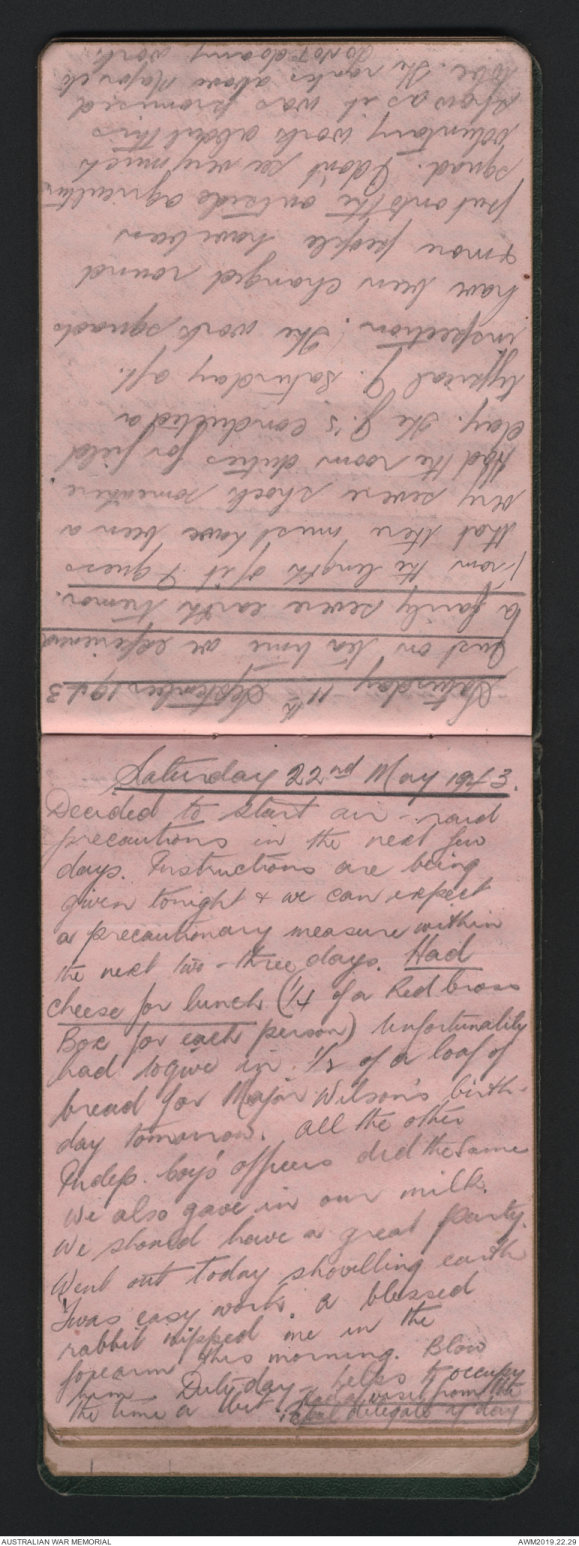 Saturday 11th September 1943
Just on tea time we experienced
a fairly severe earth tremor.
From the length of it I guess
that there must have been a
very severe shock somewhere
Had the room duties for field
day. The J.'s conducted a
typical J. Saturday aft.
inspection. The work squads
have been changed round
& more people have been
put onto the outside agricultur
squad. I don't see very much
voluntary work about this
now as it was promised
to be. The ranks above Major etc
do not do any work.
Saturday 22nd May 1943.
Decided to start air-raid
precautions in the next few
days. Instructions are being
given tonight & we can expect
a precautionary measure within
the next two-three days. Had
cheese for lunch (1/4 of a Red Cross
Box for each person) Unfortunality
had to give in 1/2 of a loaf of
bread for Major Wilson's birth-
day tomorrow. All the other
Indep. Coy's officers did the same
We also gave in our milk.
We should have a great party.
Went out today shovelling earth
'Twas easy work. A blessed
rabbit nipped me in the
forearm this morning. Blow
him. Duty day - helps to occupy
the time a bit. Had a visit from the
delegate of day